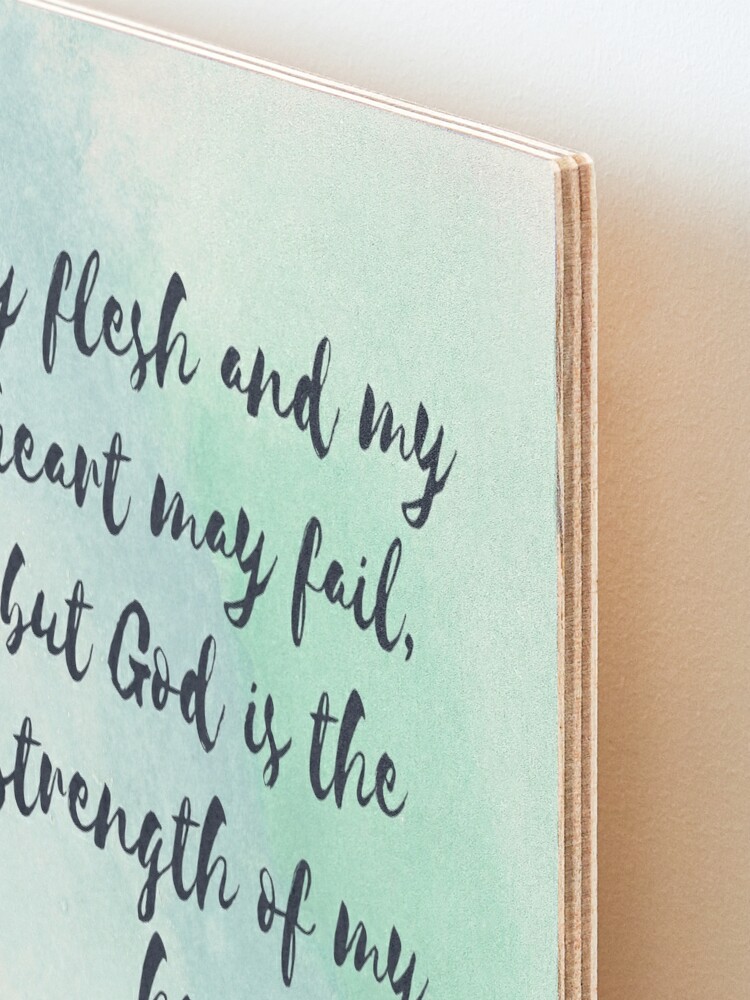 y flesh and my
heart may fail,
but God is the
strength of my